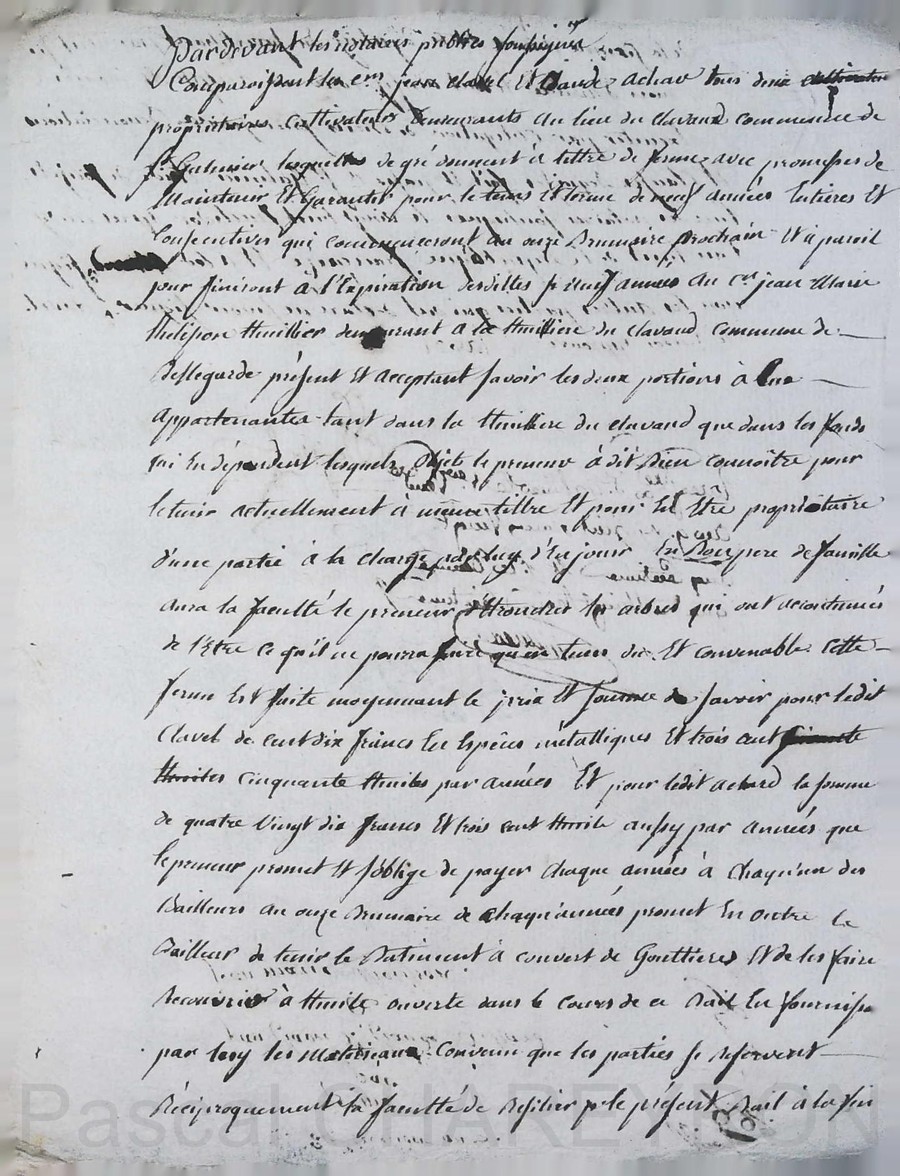 Pardevant les notaires publics soussignés
Comparoissent les cens jean Clavel Et Claude achard tous deux cultivateurs
propriétaires cultivateurs Demeurants au lieu du clavand commune de
st Galmier lesquelles de gré donnent à tittre de ferme avec promesses de
Maintenir Et Garantir pour le tems Et terme de neuf années Entières Et
Consecutives qui commenceront au onze Brumaire prochain Et à pareil
jour finiront à l'Expiration desdittes neuf années au cen jean Marie
thuillier demeurant à la thuillière du clavand commune de
Bellegarde présent Et acceptant savoir les deux portions à Eux
appartenantes tant dans la thuillere du clavand que dans les fonds
qui En dépendent lesquels objets le preneur à dit Bien connoître pour
les tenir actuellement à même tittre Et pour Et Etre propriétaire
d'une partie à la charge par luy d'En jouir En Bon pere de famille
aura la faculté le preneur d'Emonder les arbres qui ont accoutumés
de l'Etre ce qu'il ne pourra faire qu'en tems du Et convenable Cette
ferme Est faite moyennant le prix Et somme de savoir pour ledit
Clavel de cent dix francs En Espèces métalliques Et trois cent
thuiles cinquante thuiles par années Et pour ledit achard la somme
de quatre Vingt dix francs Et trois cent thuile aussy par années que
le preneur promet Et s'oblige de payer chaque années à chaqu'un des
Bailleurs au onze Brumaire de chaqu'années promet En outre le
Bailleur de tenir le Batiment à couvert de Gouttieres Et de les faire
Recouvrir à thuile ouverte dans le cours de ce Bail En fournissant
par lesy les Materiaux Convenu que les parties se reservent
Réciproquement la faculté de Resilier le présent Bail à la fin